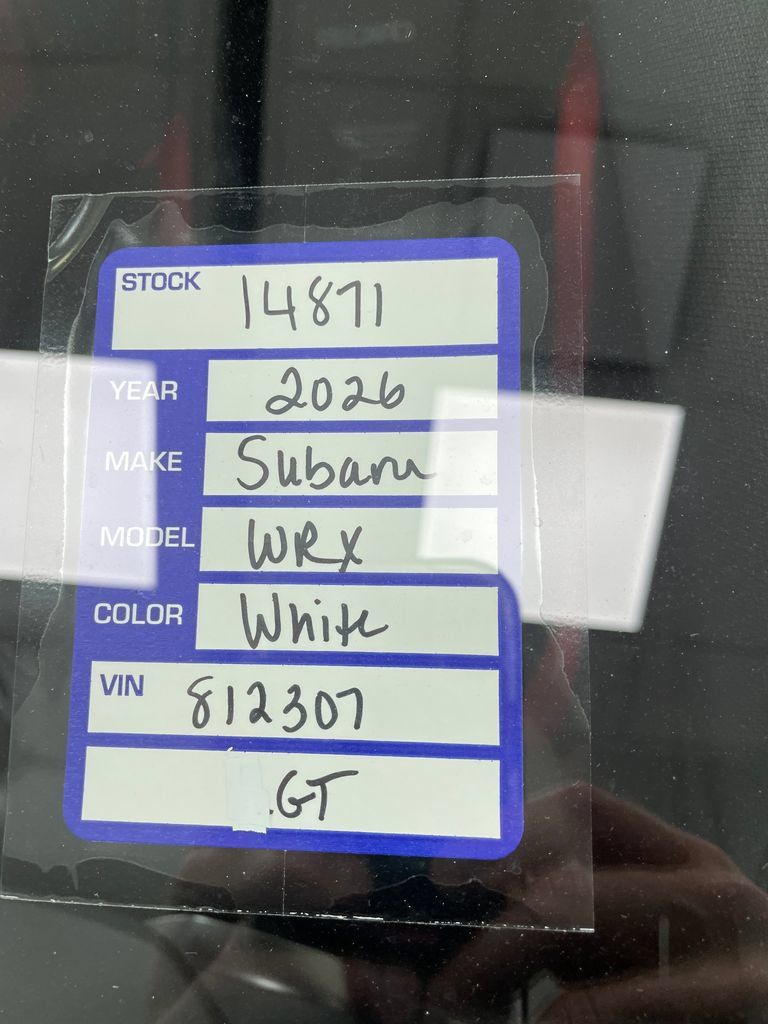 STOCK 14871
YEAR 2026
MAKE Subaru
MODEL WRX
COLOR White
VIN 812307
.GT